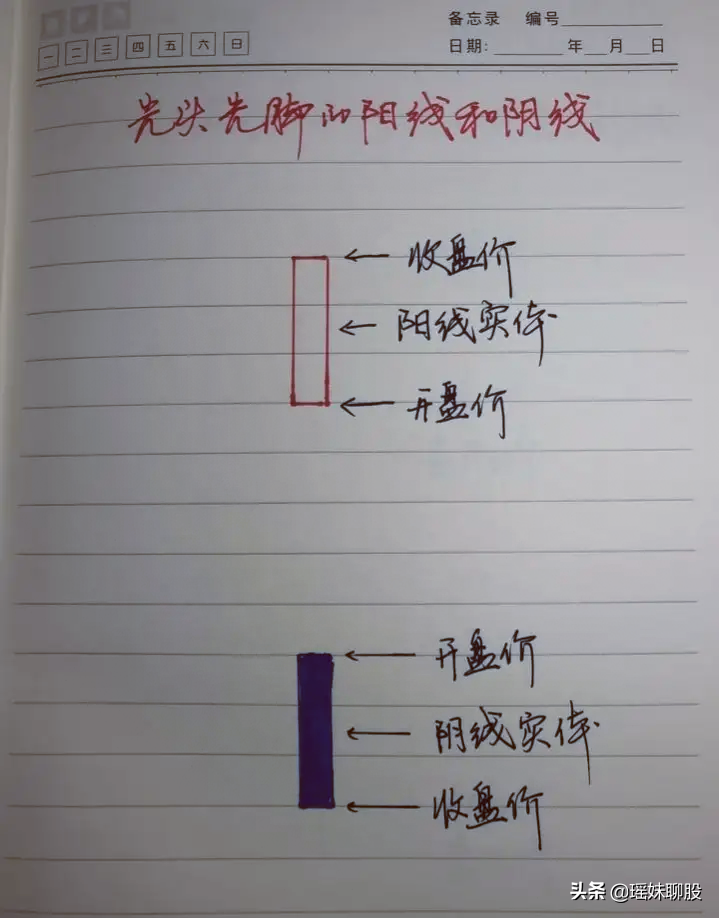 备忘录 编号
一 二 三 四 五 六 日
日期: 年 月 日
光头光脚的阳线和阴线
收盘价
阳线实体
开盘价
开盘价
阴线实体
收盘价
头条 @瑶妹聊股